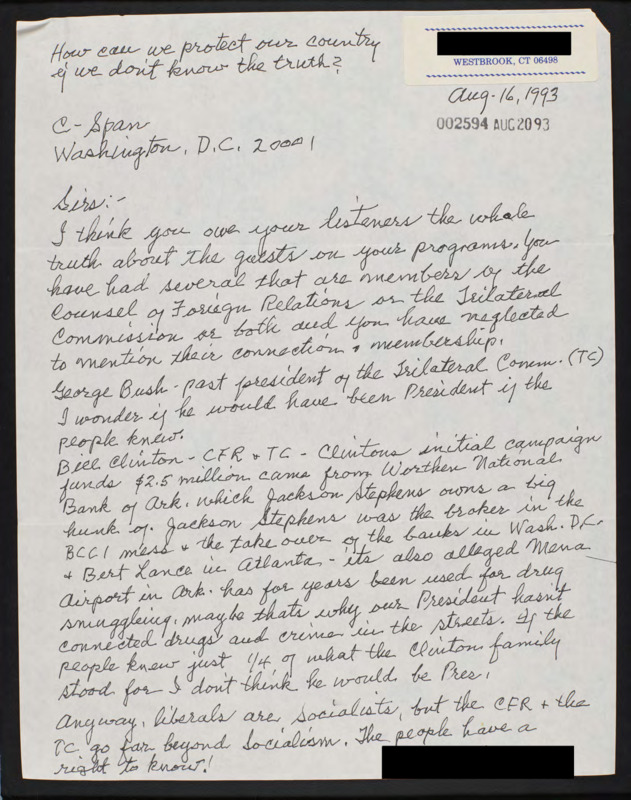 How can we protect our country
if we don't know the truth?
WESTBROOK, CT 06498
Aug. 16, 1993
002594 AUG 20 93
C-Span
Washington, D.C. 20001
Sirs:-
I think you owe your listeners the whole
truth about the guests on your programs. You
have had several that are members of the
Counsel of Foriegn Relations or the Trilateral
Commission or both and you have neglected
to mention their connection & membership.
George Bush - past president of the Trilateral Comm. (TC)
I wonder if he would have been President if the
people knew.
Bill Clinton - CFR & TC - Clintons initial campaign
funds $2.5 million came from Worthen National
Bank of Ark. which Jackson Stephens owns a big
hunk of. Jackson Stephens was the broker in the
BCCI mess & the take over of the banks in Wash. D.C.
& Bert Lance in Atlanta - its also alleged Mena
Airport in Ark. has for years been used for drug
smuggleing, maybe thats why our President hasn't
connected drugs and crime in the streets. If the
people knew just 1/4 of what the Clinton family
stood for I don't think he would be Pres.
Anyway, liberals are socialists, but the CFR & the
TC go far beyond Socialism. The people have a
right to know!